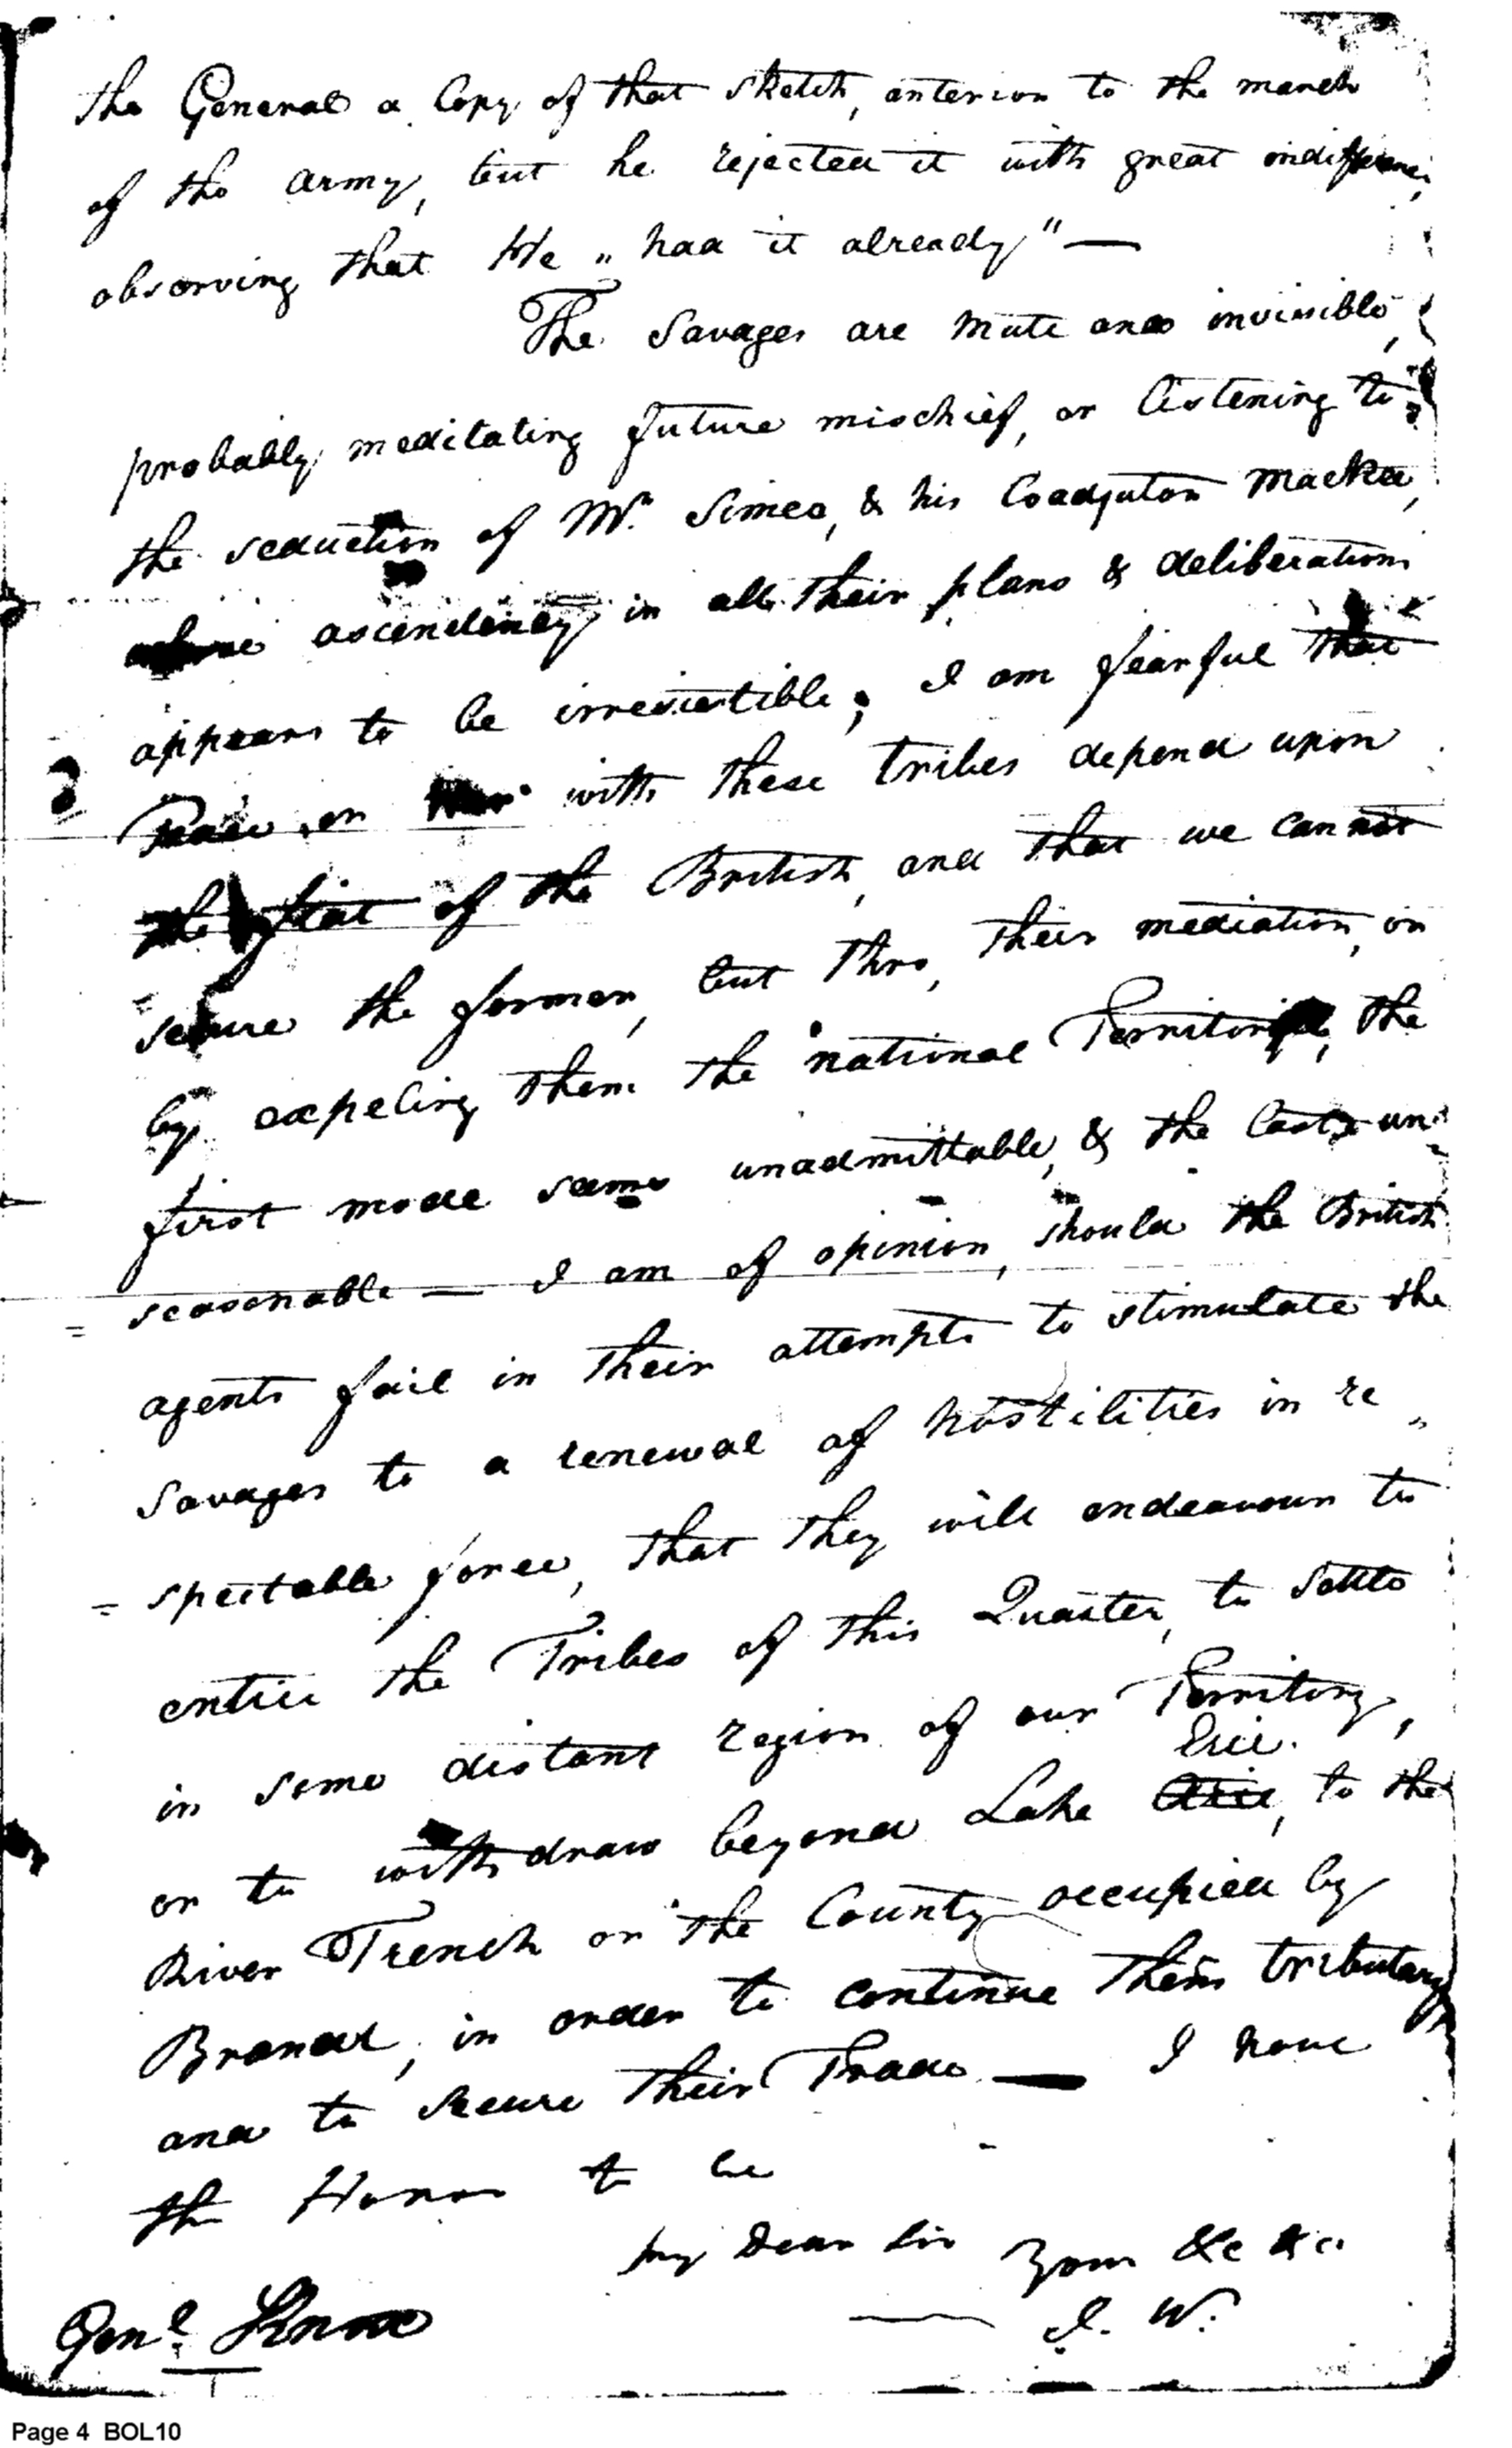 the General a Copy of that sketch, anterior to the march
of the army, but he rejected it with great indifference,
observing that He "had it already" —
The Savages are mute and invisible,
probably meditating future mischief, or listening to
the seduction of Mr. Simco, & his Coadjutor Mackee,
whose ascendency in all their plans & deliberations
appears to be irresistible; I am fearful that
Peace or War with these tribes depend upon
the fiat of the British, and that we cannot
secure the former, but thro, their mediation, or
by expeling them the national Territories, the
first mode seems unadmittable, & the last un
= seasonable — I am of opinion, should the British
agents fail in their attempts to stimulate the
Savages to a renewal of hostilities in re„
= spectable force, that they will endeavour to
entice the Tribes of this Quarter, to settle
in some distant region of our Territory,
Erie.
or to withdraw beyond Lake, to the
River Trench or the County occupied by
Brandt, in order to continue them tributary
and to secure their Trade — I have
the Honor to be
my Dear Sir Your &c &c
I. W.
Genl. Knox
Page 4 BOL10